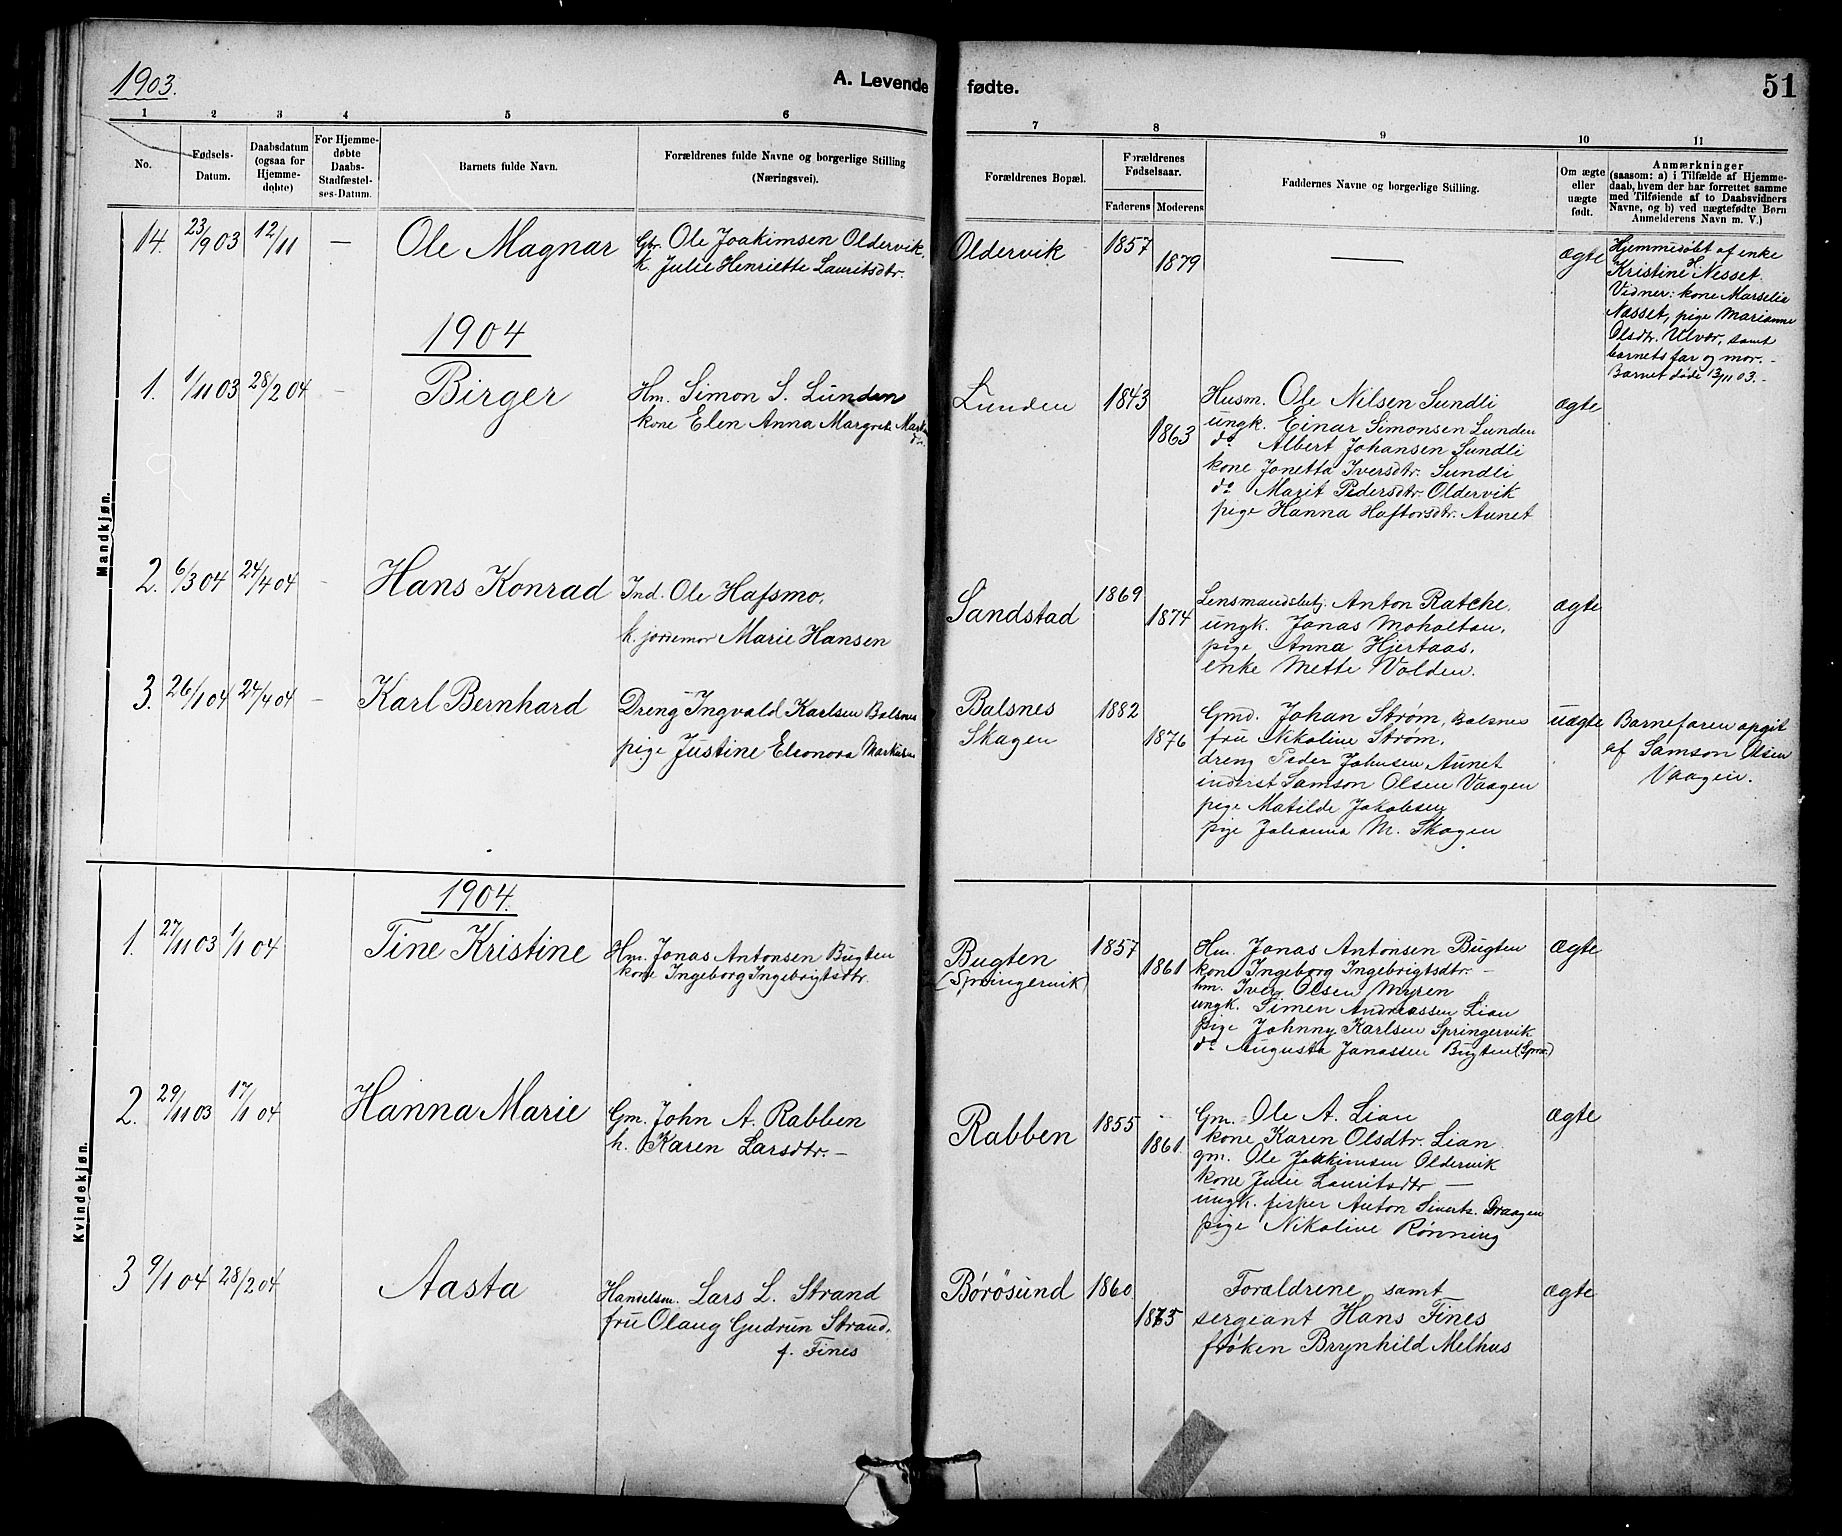 1903.
A. Levende fødte.
51
1 2 3 4 5 6 7 8 9 10 11
No.
Fødsels-Datum.
Daabsdatum (ogsaa for Hjemmedøbte)
For Hjemmedøbte Daabs-Stadfæstelses-Datum.
Barnets fulde Navn.
Forældrenes fulde Navne og borgerlige Stilling (Næringsvei).
Forældrenes Bopæl.
Forældrenes Fødselsaar.
Faderens Moderens
Faddernes Navne og borgerlige Stilling.
Om ægte eller uægte født.
Anmærkninger
(saasom: a) i Tilfælde af Hjemme-
daab, hvem der har forrettet samme
med Tilføiende af to Daabsvidners
Navne, og b) ved uægtefødte Børn
Anmelderens Navn m. V.)
Mandkjøn.
14. 23/9 03 12/11 — Ole Magnar
Gbr. Ole Joakimsen Oldervik,
k. Julie Henriette Lauritsdtr.
Oldervik 1857 1879 — ægte
Hjemmedøbt af enke
Kristine H. Nesset.
Vidner: kone Marselie
Nesset, pige Marianne
Olsdtr. Ulvør, samt
barnets far og mor. -
Barnet døde 13/11 03. -
1904
1. 1/11 03 28/2 04 - Birger
Hm. Simon S. Lunden
kone Elen Anna Margrete
Lunden 1843 1863
Husm. Ole Nilsen Sundli
ungk. Einar Simonsen Lunden
do Albert Johansen Sundli
kone Jonetta Iversdtr. Sundli
do Marit Pedersdtr. Oldervik
pige Hanna Haftorsdtr. Aunet
ægte
2. 6/3 04 24/4 04 - Hans Konrad
Ind. Ole Hafsmo,
k. jordemor Marie Hansen
Sandstad 1869 1874
Lensmandsbetj. Anton Ratche,
ungk. Jonas Moholtan,
pige Anna Hjertaas,
enke Mette Volden.
ægte
3. 26/1 04 24/4 04 - Karl Bernhard
Dreng Ingvald Karlsen Balsnes
pige Justine Eleonora Markusen
Balsnes
Skagen
1882 1876
Gmd. Johan Strøm, Balsnes
fru Nikoline Strøm,
dreng Peder Johnsen Aunet
inderst Samson Olsen Vaagen
pige Matilde Jakobsen
pige Johanna M. Skagen
uægte
Barnefaren opgit
af Samson Olsen
Vaagen.
Kvindekjøn.
1904.
1. 27/11 03 1/1 04 Tine Kristine
Hm. Jonas Antonsen Bugten
kone Ingeborg Ingebrigtsdtr.
Bugten
(Springervik)
1857 1861
Hm. Jonas Antonsen Bugten
kone Ingeborg Ingebrigtsdtr. -
hm. Iver Olsen Myren
ungk. Simen Andreassen Lian
pige Johnny Karlsen Springervik
do Augusta Janassen Bugten (Sprv.)
ægte
2. 29/11 03 17/1 04 Hanna Marie
Gm. John A. Rabben
h. Karen Larsdtr. -
Rabben 1855 1861.
Gm. Ole A. Lian
kone Karen Olsdtr. Lian
gm. Ole Joakimsen Oldervik
kone Julie Lauritsdtr —
ungk. fisker Anton Siverts. Draagen
pige Nikoline Rønning
ægte
3 9/1 04 28/2 04 Aasta
Handelsm. Lars L. Strand
fru Olaug Gudrun Strand,
f. Fines
Børøsund 1860 1875
Forældrene samt
sergeant Hans Fines
frøken Brynhild Melhus
ægte